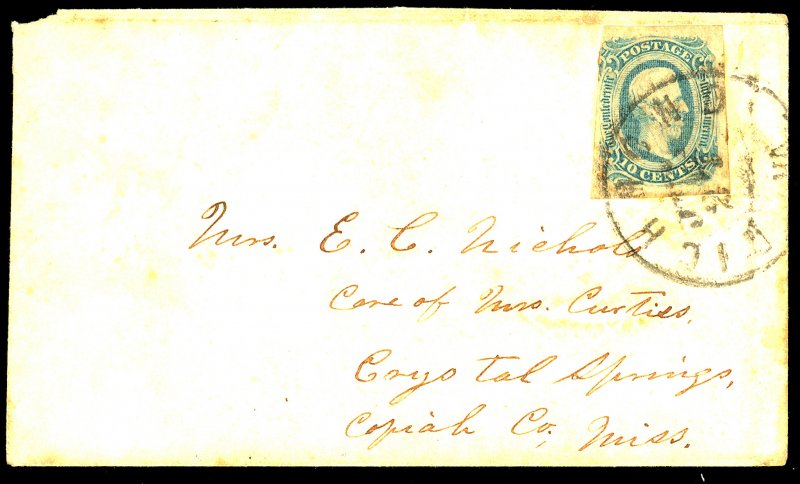 POSTAGE
The Confederate States of America
10 CENTS
Mrs. E. C. Nichols
Care of Mrs. Curtiss,
Crystal Springs,
Copiah Co, Miss.